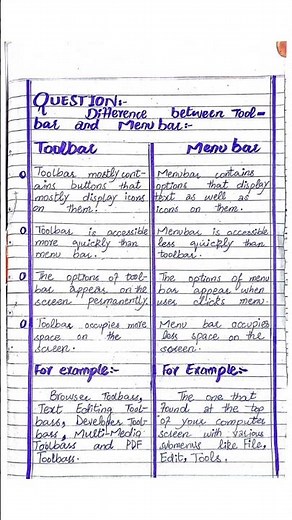 QUESTION:-
Difference between Tool-
bar and Menu bar:-
Toolbar
Menu bar
Toolbar mostly cont-
ains buttons that
mostly display icons
on them.
Menubar contains
options that display
text as well as
icons on them.
Toolbar is accessible
more quickly than
menu bar.
Menubar is accessible
less quickly than
toolbar.
The options of tool-
bar appear on the
screen permanently.
The options of menu
bar appear when
user clicks menu.
Toolbar occupies more
space on the
screen.
Menu bar occupies
less space on the
screen.
For example:-
Browser Toolbars,
Text Editing Tool-
bars, Developer Tool-
bars, Multi-Media
Toolbars and PDF
Toolbars.
For Example:-
The one that
found at the top
of your computer
screen with various
submenus like File,
Edit, Tools.